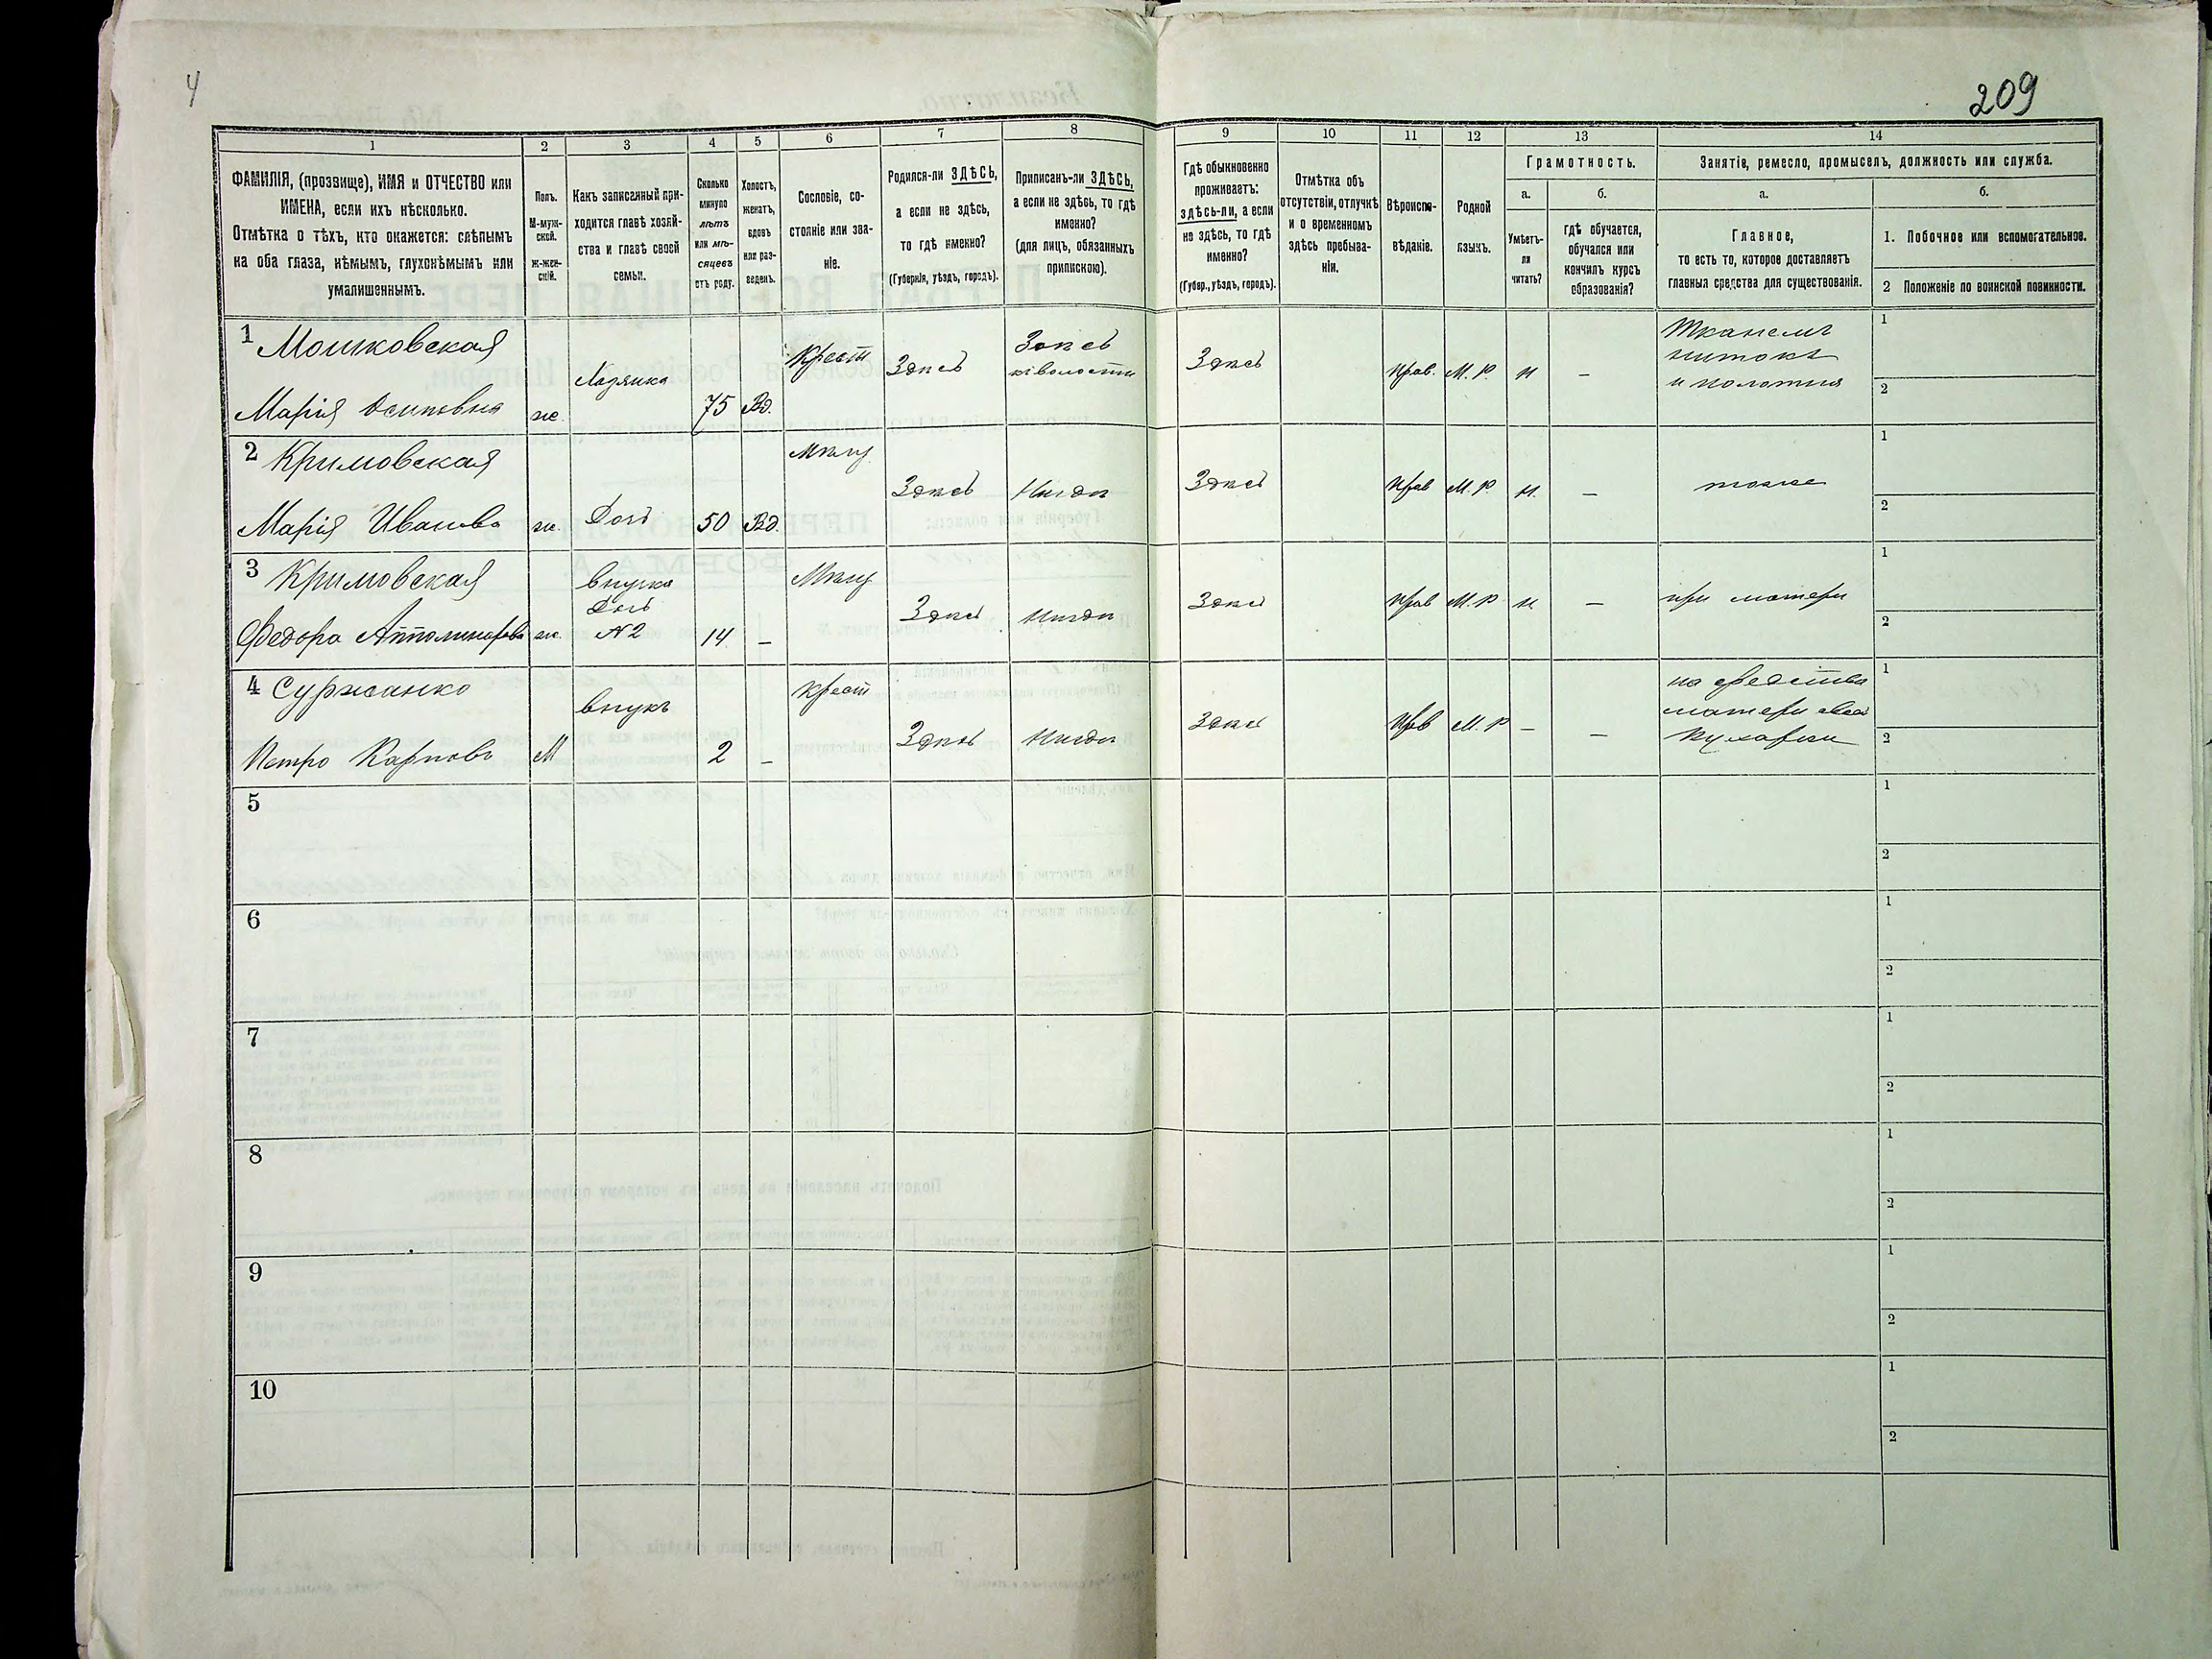 4
209
1
2
3
4
5
6
7
8
9
10
11
12
13
14
ФАМИЛІЯ, (прозвище), ИМЯ и ОТЧЕСТВО или
ИМЕНА, если ихъ нѣсколько.
Отмѣтка о тѣхъ, кто окажется: слѣпымъ
на оба глаза, нѣмымъ, глухонѣмымъ или
умалишеннымъ.
Полъ.
М-муж-
ской.
Ж-жен-
скій.
Какъ записанный при-
ходится главѣ хозяй-
ства и главѣ своей
семьи.
Сколько
минуло
лѣтъ
или мѣ-
сяцевъ
отъ роду.
Холостъ,
женатъ,
вдовъ
или раз-
веденъ.
Сословіе, со-
стояніе или зва-
ніе.
Родился-ли ЗДѢСЬ,
а если не здѣсь,
то гдѣ именно?
(Губернія, уѣздъ, городъ).
Приписанъ-ли ЗДѢСЬ,
а если не здѣсь, то гдѣ
именно?
(для лицъ, обязанныхъ
припискою).
Гдѣ обыкновенно
проживаетъ:
здѣсь-ли, а если
не здѣсь, то гдѣ
именно?
(Губер., уѣздъ, городъ).
Отмѣтка объ
отсутствіи, отлучкѣ
и о временномъ
здѣсь пребыва-
ніи.
Вѣроиспо-
вѣданіе.
Родной
языкъ.
Грамотность.
а.
Умѣетъ-
ли
читать?
б.
гдѣ обучается,
обучался или
кончилъ курсъ
образованія?
Занятіе, ремесло, промыселъ, должность или служба.
а.
Главное,
то есть то, которое доставляетъ
главныя средства для существованія.
б.
1. Побочное или вспомогательное.
2 Положеніе по воинской повинности.
1 Мошковская
Марія Осиповна
ж.
75
Вд.
Крест
Здѣсь
Здѣсь
Здѣсь
Прав.
М. Р.
н
—
и полотна
1
2
2 Кримовская
Марія Иванова
ж.
Дочь
50
Вд.
Мѣщ.
Здѣсь
Нигдѣ
Здѣсь
Прав
М. Р.
н.
—
тоже
1
2
3 Кримовская
Федора
ж.
внучка
Дочь
№ 2
14
—
Мѣщ
Здѣсь
Нигдѣ
Здѣсь
Прав
М. Р
н
—
при матери
1
2
4 Суржанко
Петро Карповъ
М
внукъ
2
—
крест
Здѣсь
Нигдѣ
Здѣсь
Прв
М. Р
—
—
на средства
матери
Кухарки
1
2
5
1
2
6
1
2
7
1
2
8
1
2
9
1
2
10
1
2